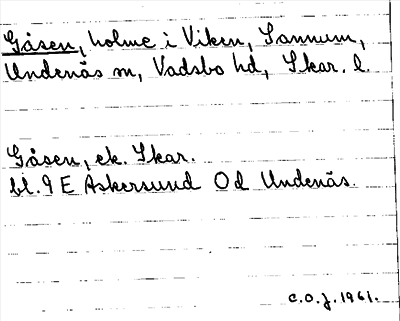 Gåsen, holme i Viken, Sannum,
Undenäs sn, Vadsbo hd, Skar. l.
Gåsen, ek. Skar.
bl. 9 E Askersund Od Undenäs.
C.O.J. 1961.